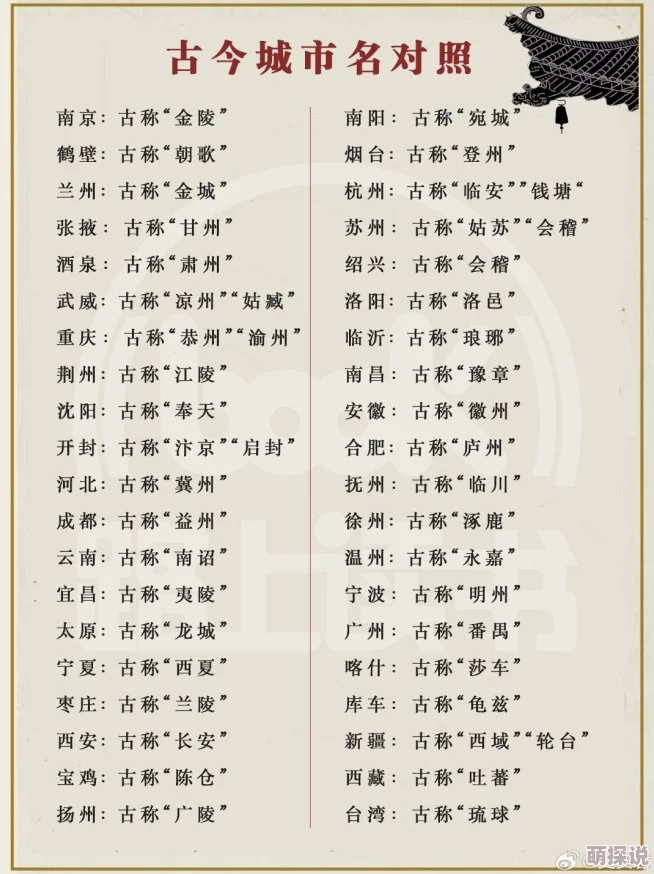 古今城市名对照
南京：古称“金陵”
鹤壁：古称“朝歌”
兰州：古称“金城”
张掖：古称“甘州”
酒泉：古称“肃州”
武威：古称“凉州”“姑臧”
重庆：古称“恭州”“渝州”
荆州：古称“江陵”
沈阳：古称“奉天”
开封：古称“汴京”“启封”
河北：古称“冀州”
成都：古称“益州”
云南：古称“南诏”
宜昌：古称“夷陵”
太原：古称“龙城”
宁夏：古称“西夏”
枣庄：古称“兰陵”
西安：古称“长安”
宝鸡：古称“陈仓”
扬州：古称“广陵”
南阳：古称“宛城”
烟台：古称“登州”
杭州：古称“临安””钱塘“
苏州：古称“姑苏”“会稽”
绍兴：古称“会稽”
洛阳：古称“洛邑”
临沂：古称“琅琊”
南昌：古称“豫章”
安徽：古称“徽州”
合肥：古称“庐州”
抚州：古称“临川”
徐州：古称“涿鹿”
温州：古称“永嘉”
宁波：古称“明州”
广州：古称“番禺”
喀什：古称“莎车”
库车：古称“龟兹”
新疆：古称“西域”“轮台”
西藏：古称“吐蕃”
台湾：古称“琉球”
book
晚上读书
萌探说